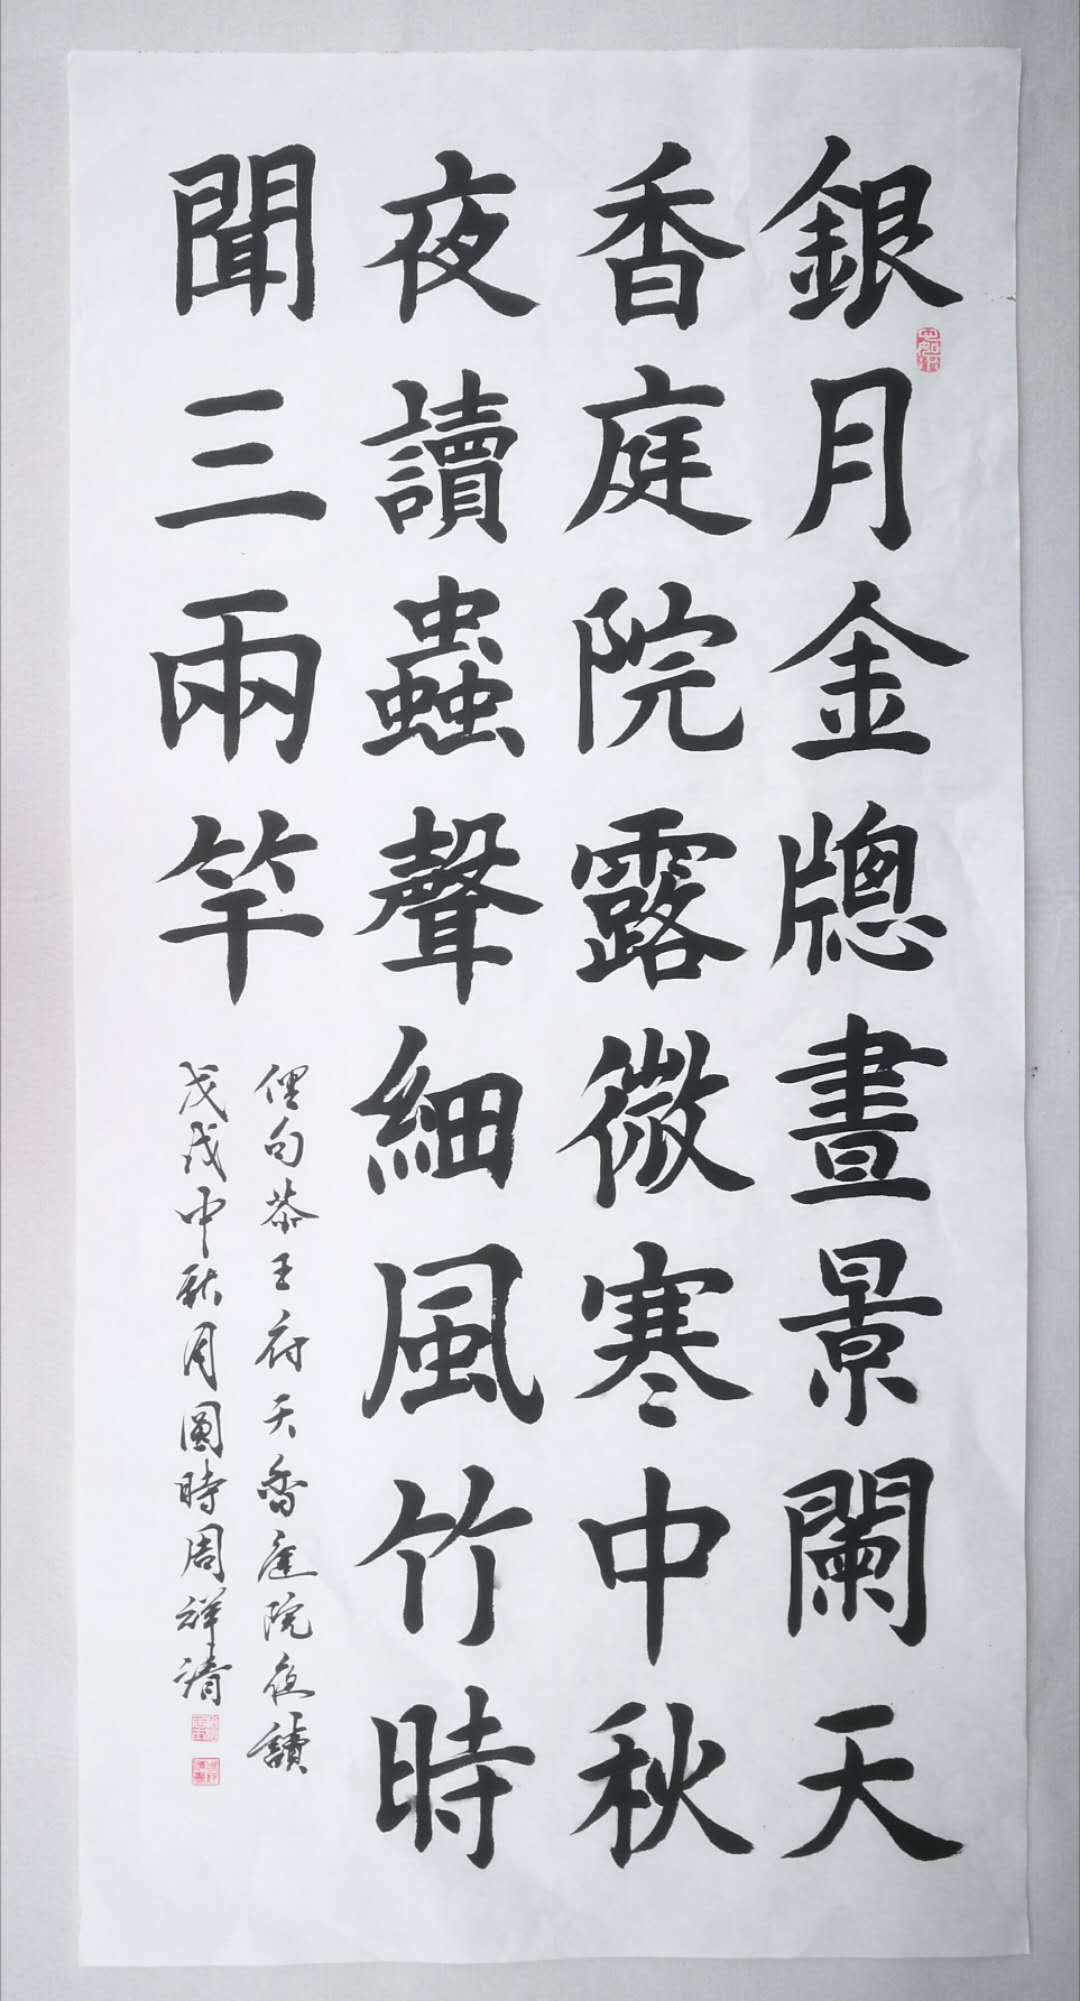 銀月金牕晝景闌天
香庭院露微寒中秋
夜讀蟲聲細風竹時
聞三兩竿
俚句恭王府天香庭院夜讀
戊戌中秋月圓時周祥清